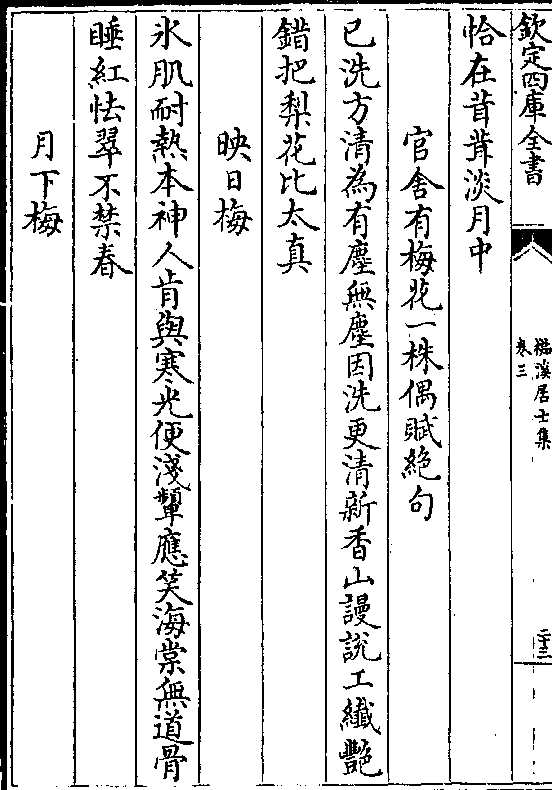 欽定四庫全書
檆溪居士集
卷三
二十三
恰在昔昔淡月中
官舍有梅花一株偶賦絶句
已洗方清為有塵無塵因洗更清新香山謾說工纖艷
錯把梨花比太真
映日梅
氷肌耐熱本神人肯與寒光便淺顰應笑海棠無道骨
睡紅怯翠不禁春
月下梅